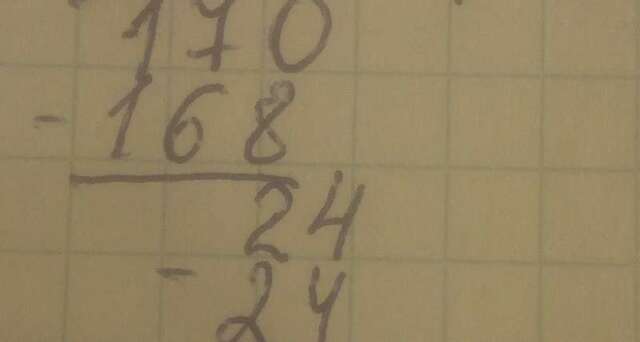 170
- 168
24
- 24